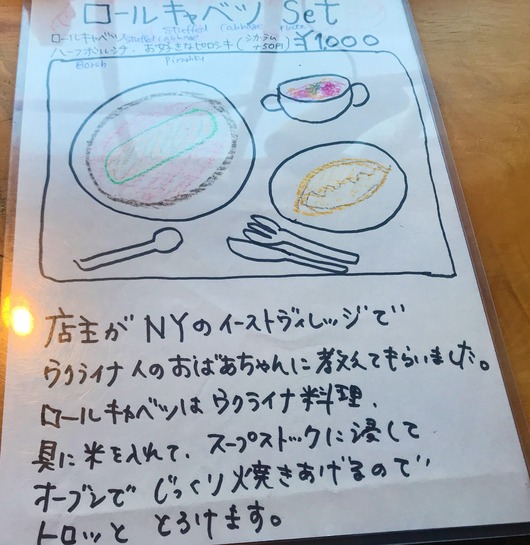 ロールキャベツ Set
Stuffed Cabbage Plate
ロールキャベツ
ハーフボルシチ、お好きなピロシキ (シカラム +50円) ¥1000
Borsh Piroshky
店主がNYのイーストヴィレッジで
ウクライナ人のおばあちゃんに教えてもらいました。
ロールキャベツはウクライナ料理、
具に米を入れて、スープストックに浸して
オーブンでじっくり焼きあげるので
トロッととろけます。